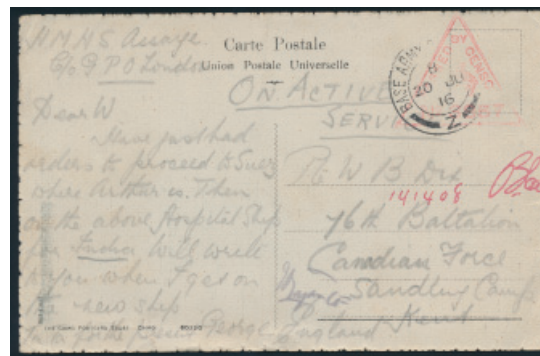 H.M.H.S Assaye
C/o G P O London
Carte Postale
Union Postale Universelle
ON ACTIVE
SERVICE
BASE ARMY
20 JU
16
Z
Dear W
Have just had
orders to proceed to Suez
where Arthur is. Then
on the above Hospital Ship
for India Will write
to you when I get on
the new ship
George
W B Dix
141408
76th Battalion
Canadian Force
Sandling Camp
Kent
England